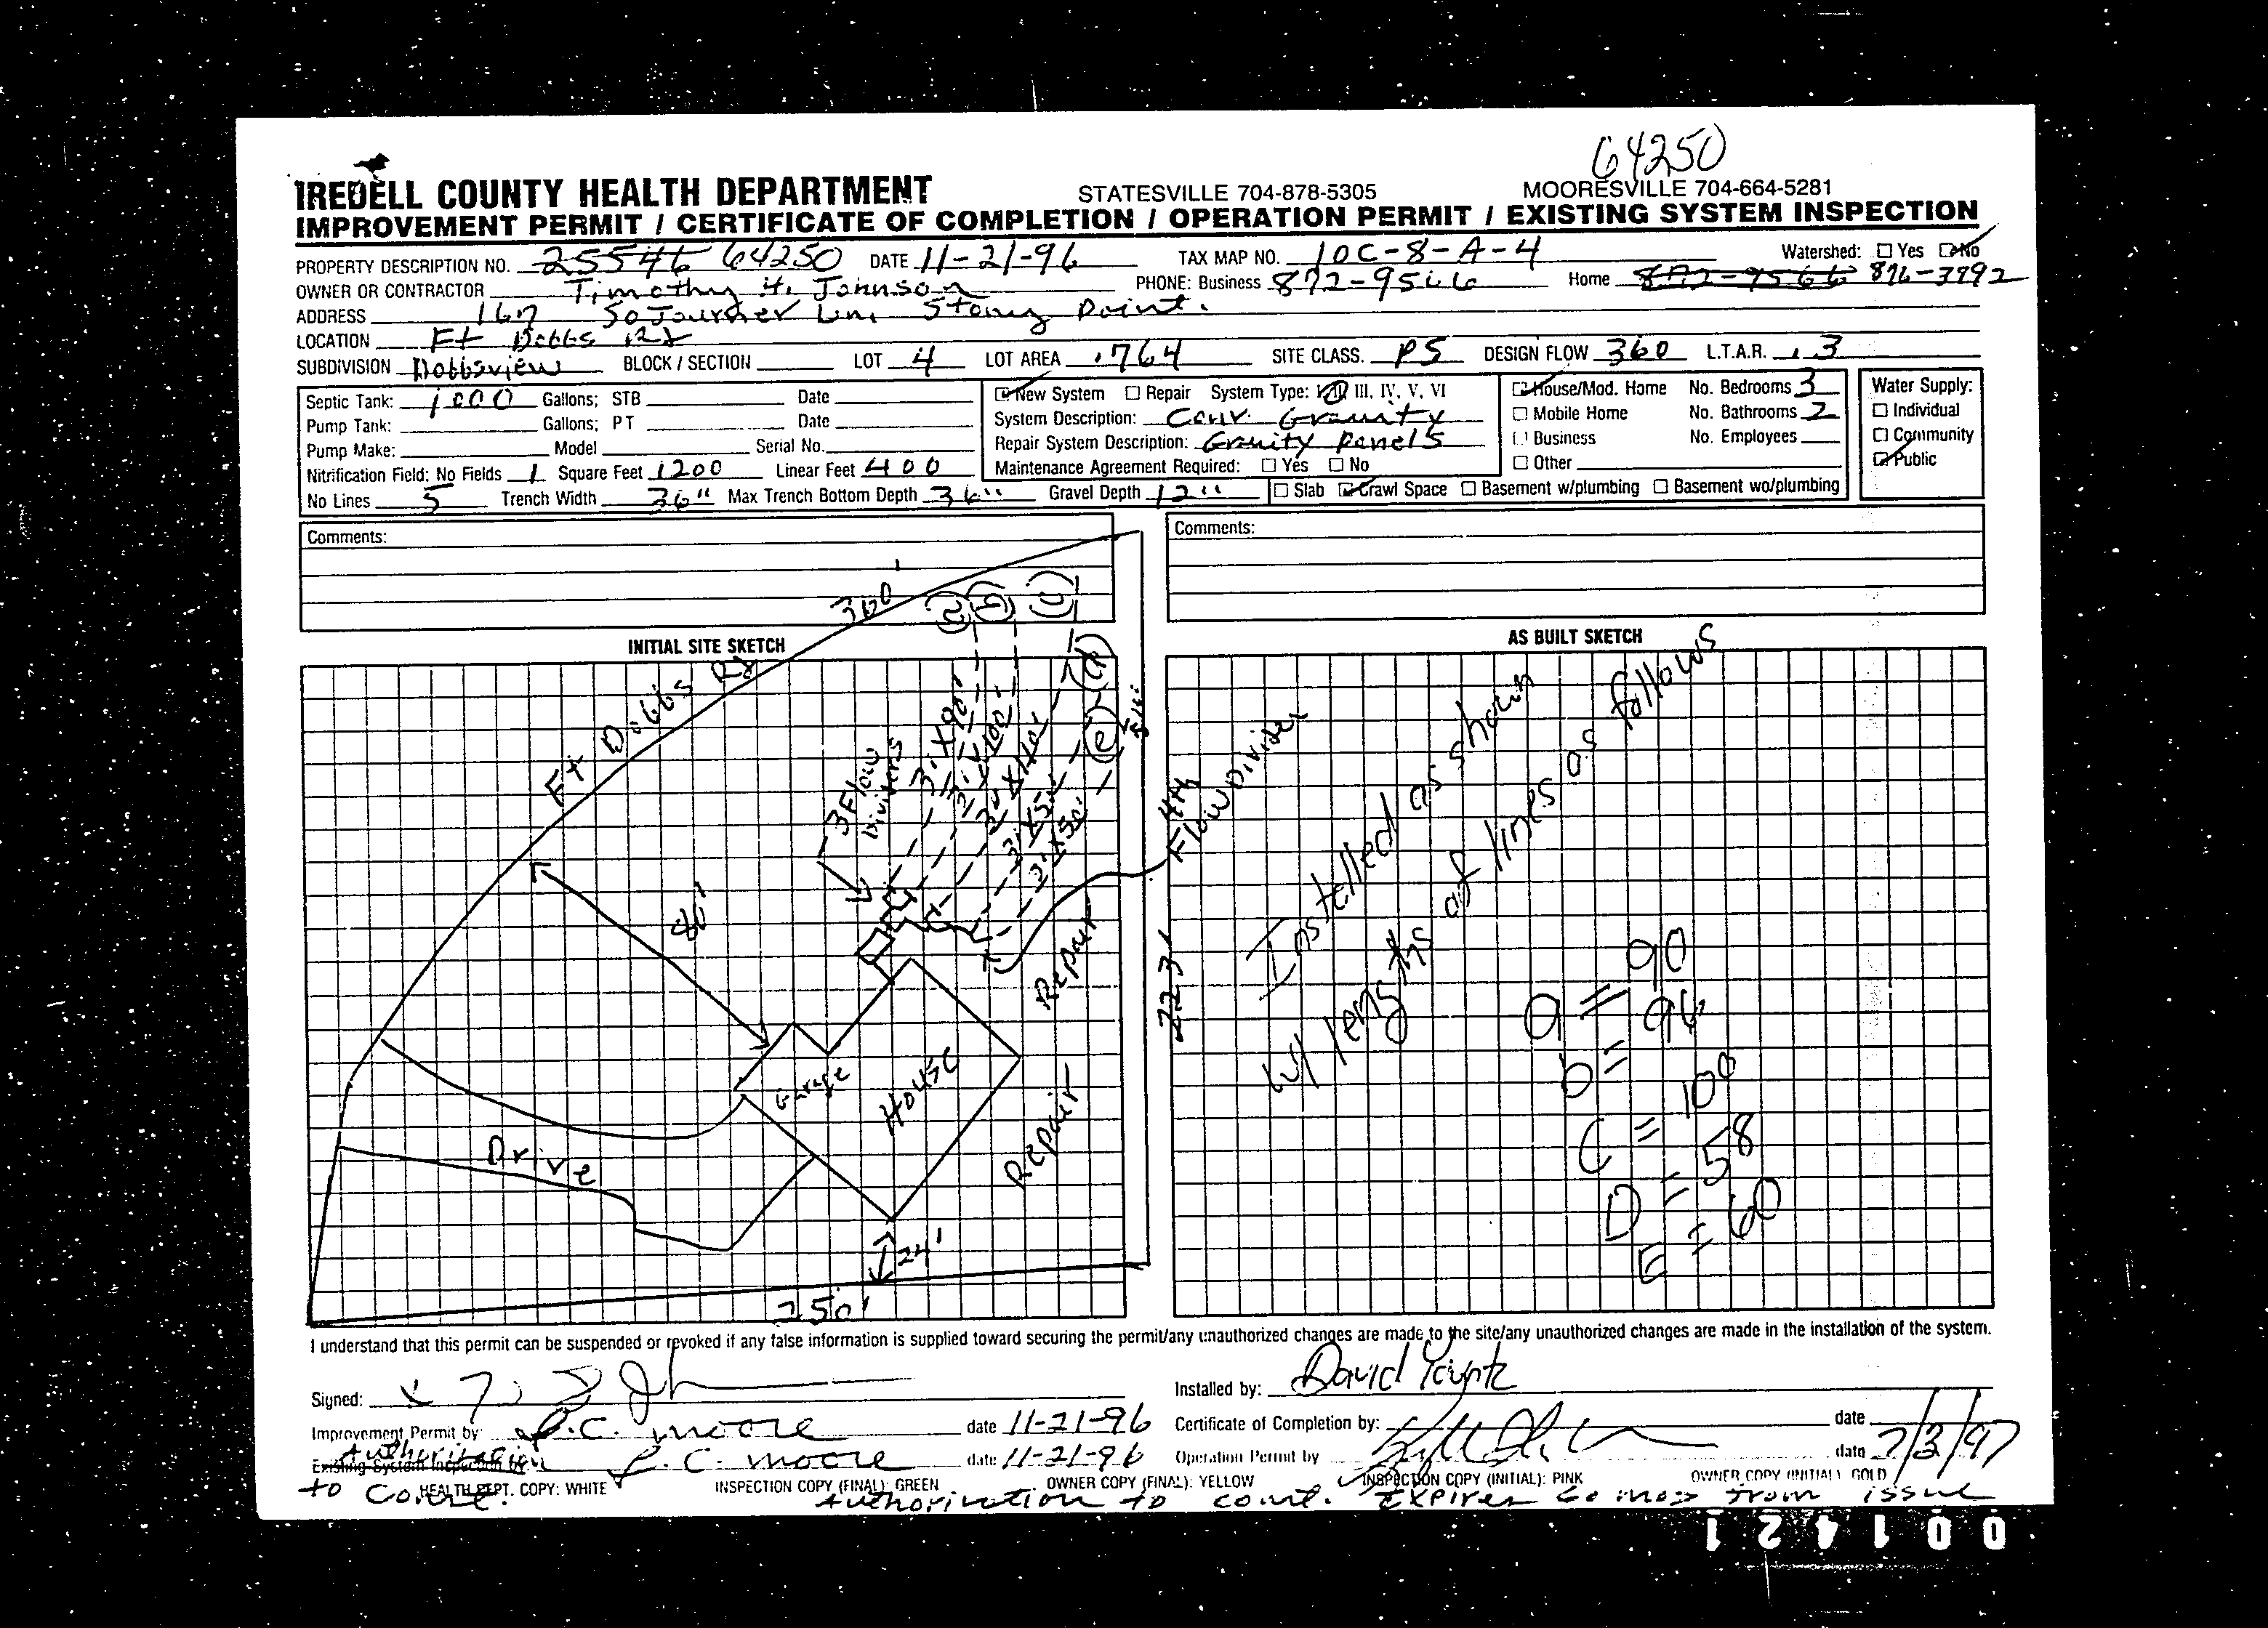 64250
IREDELL COUNTY HEALTH DEPARTMENT STATESVILLE 704-878-5305 MOORESVILLE 704-664-5281
IMPROVEMENT PERMIT / CERTIFICATE OF COMPLETION / OPERATION PERMIT / EXISTING SYSTEM INSPECTION
PROPERTY DESCRIPTION NO. 25546 64250 DATE 11-21-96 TAX MAP NO. 10C-8-A-4 Watershed: ☐ Yes ☑ No
OWNER OR CONTRACTOR Timothy H. Johnson PHONE: Business 872-9566 Home 872-9566 876-3992
ADDRESS 167 Sojourner Ln. Stony Point.
LOCATION Ft Dobbs Rd
SUBDIVISION Dobbsview BLOCK / SECTION LOT 4 LOT AREA .764 SITE CLASS. PS DESIGN FLOW 360 L.T.A.R. .3
Septic Tank: 1000 Gallons; STB Date
Pump Tank: Gallons; PT Date
Pump Make: Model Serial No.
Nitrification Field: No Fields 1 Square Feet 1200 Linear Feet 400
No Lines 5 Trench Width 36" Max Trench Bottom Depth 36" Gravel Depth 12"
☑ New System ☐ Repair System Type: I, II, III, IV, V, VI
System Description: Conv. Gravity
Repair System Description: Gravity Panels
Maintenance Agreement Required: ☐ Yes ☐ No
☑ House/Mod. Home No. Bedrooms 3
☐ Mobile Home No. Bathrooms 2
☐ Business No. Employees
☐ Other
☐ Slab ☑ Crawl Space ☐ Basement w/plumbing ☐ Basement wo/plumbing
Water Supply:
☐ Individual
☐ Community
☑ Public
Comments:
Comments:
INITIAL SITE SKETCH
360'
Ft Dobbs Rd
3 Flow
Dividers
3'X90'
3'X100'
3'X50'
3'X50'
(e)
80'
Repair
Garage
House
Repair
Drive
24'
250'
223'
4th
Flow Divider
AS BUILT SKETCH
Installed as shown
w/ lengths of lines as follows
a = 90
b = 96
C = 100
D = 58
E = 60
I understand that this permit can be suspended or revoked if any false information is supplied toward securing the permit/any unauthorized changes are made to the site/any unauthorized changes are made in the installation of the system.
Signed: Installed by: David
Improvement Permit by: R.C. Moore date 11-21-96 Certificate of Completion by: date
Authorization
Existing System Inspection by: R.C. Moore date 11-21-96 Operation Permit by date 7/3/97
to Const.
HEALTH DEPT. COPY: WHITE INSPECTION COPY (FINAL): GREEN OWNER COPY (FINAL): YELLOW INSPECTION COPY (INITIAL): PINK OWNER COPY (INITIAL) GOLD
Authorization to const. Expires 60 mos from issue
001421